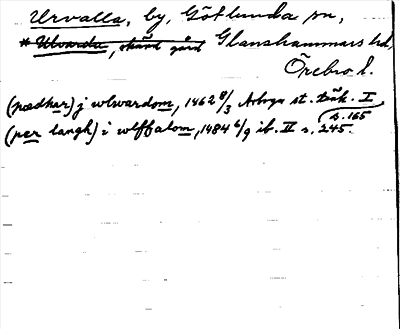 Urvalla, by, Götlunda sn,
* Ulvarda, okänd gård Glanshammars hd,
Örebro l.
(pædhar) j wlwardom, 1462 8/3 Arboga st. tänk. I s. 165
(per langh) i wlffalom, 1484 6/9 ib. II s. 245.